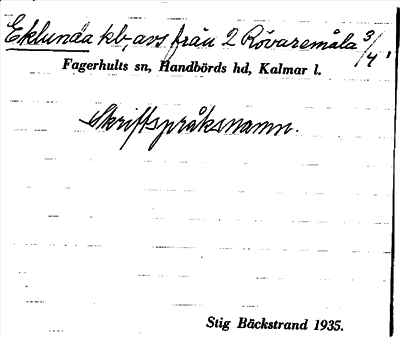 Eklunda kb-avs från 2 Rövaremåla 3/4
Fagerhults sn, Handbörds hd, Kalmar l.
Skriftspråksnamn.
Stig Bäckstrand 1935.